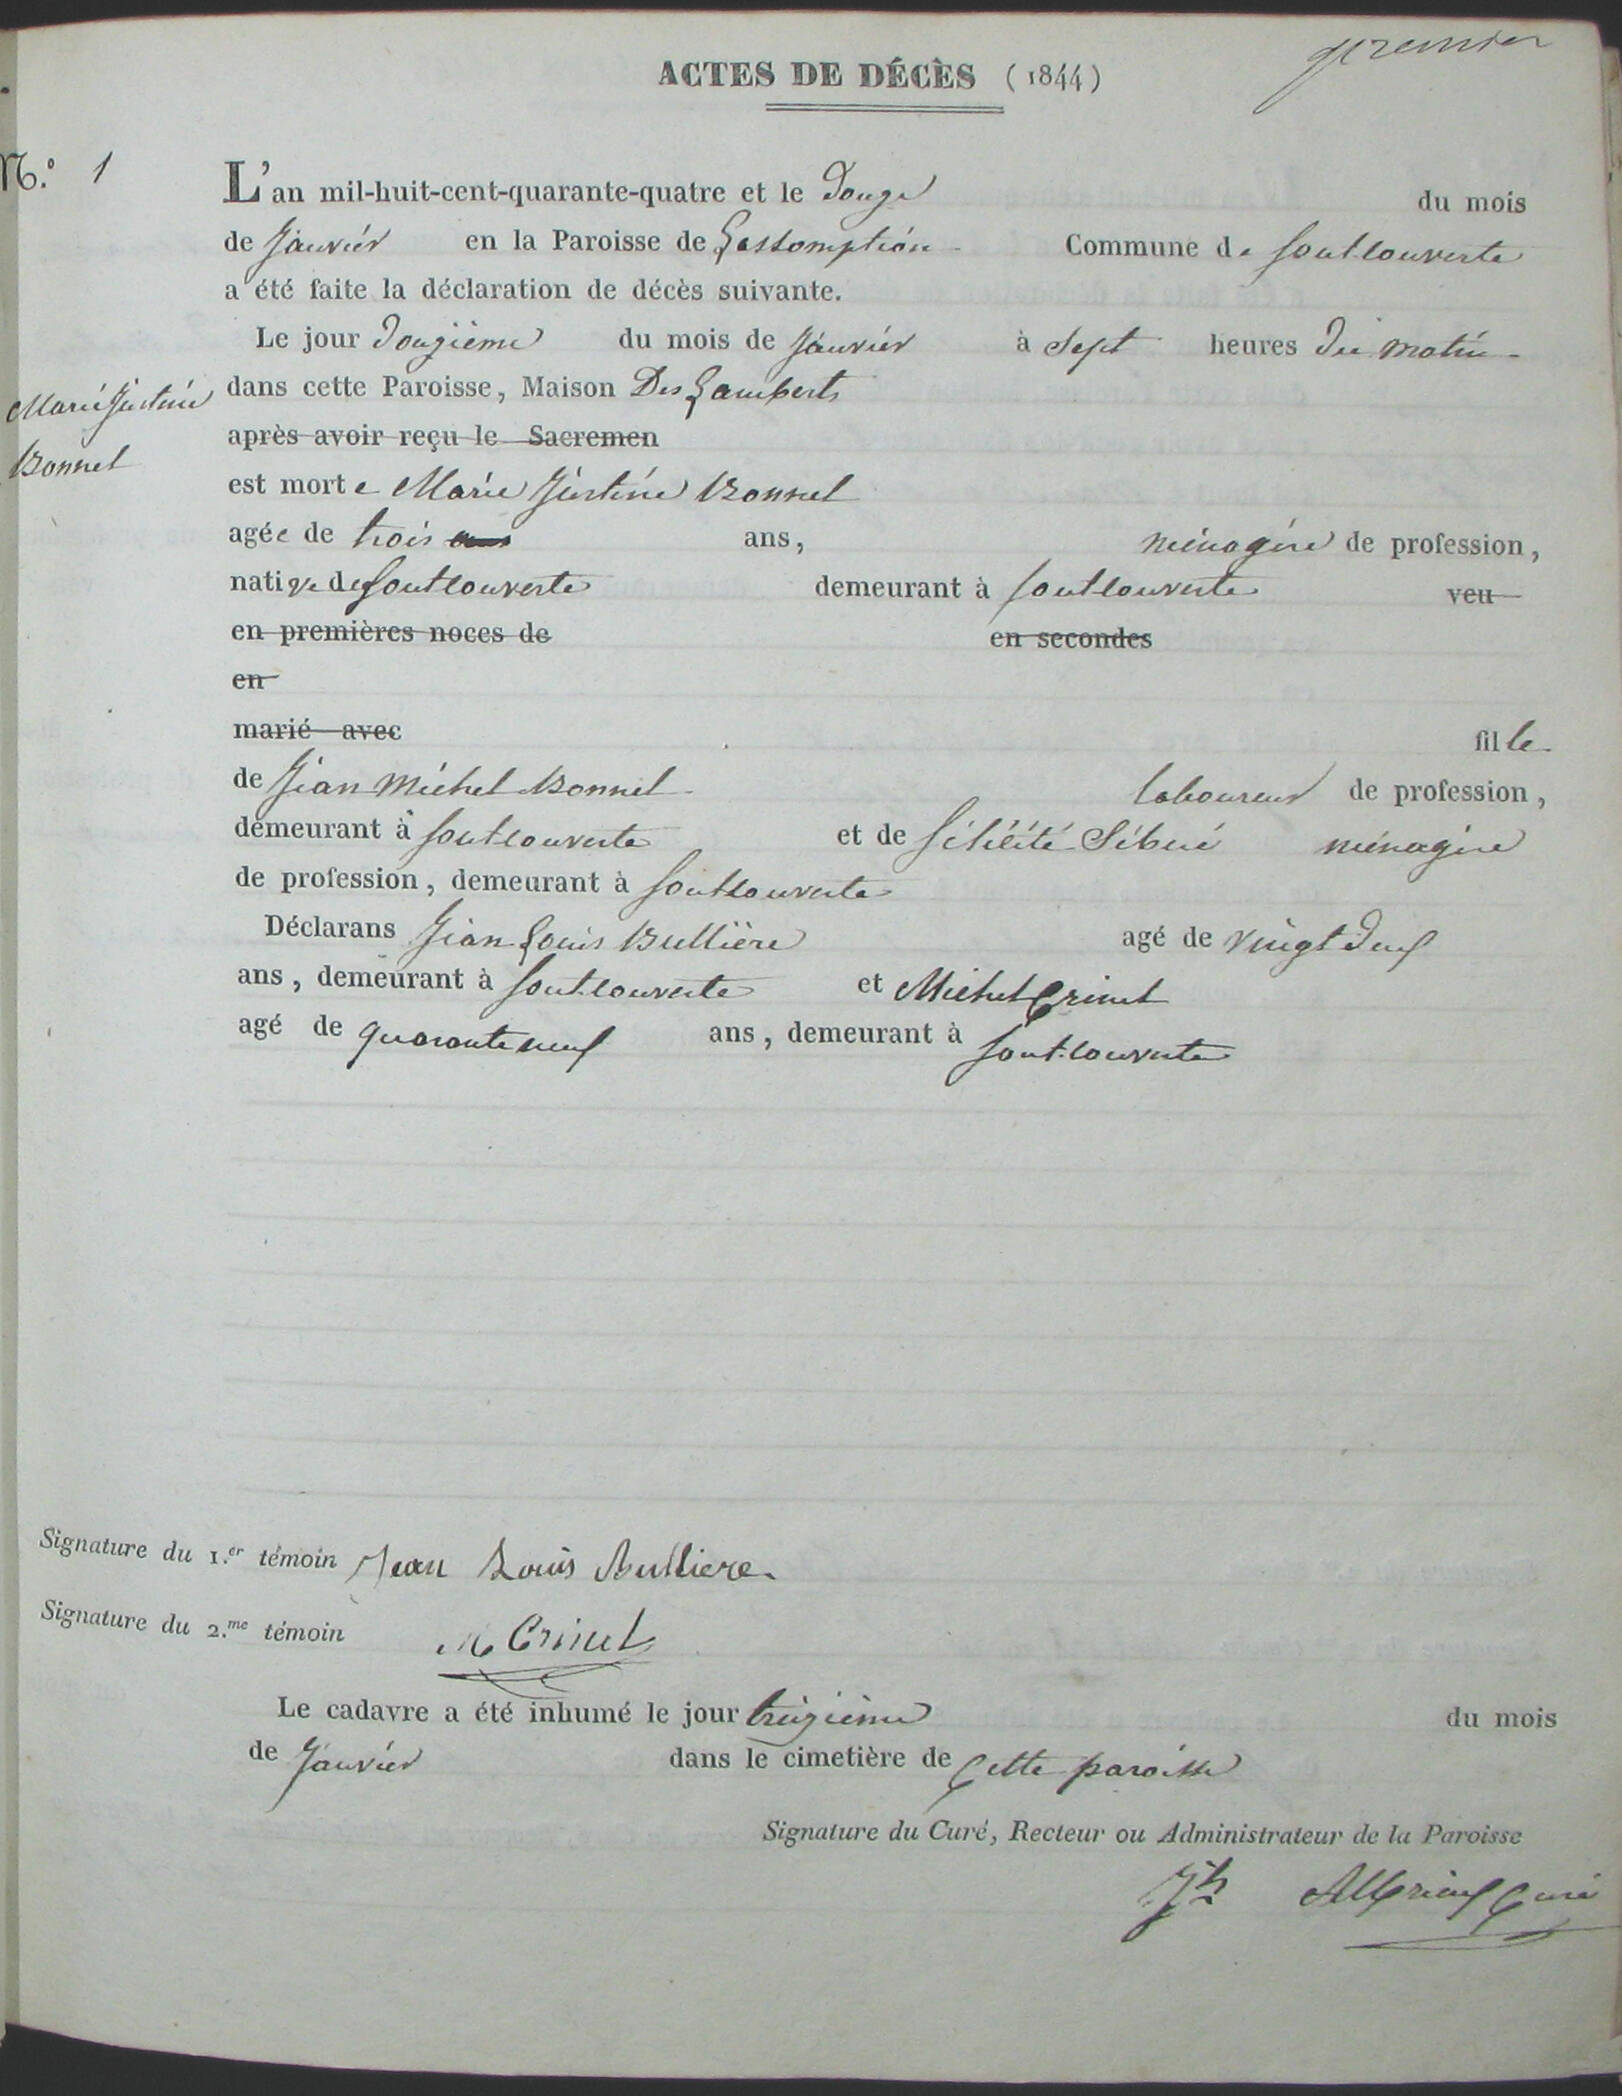 premier
ACTES DE DÉCÈS (1844)
N.º 1
L'an mil-huit-cent-quarante-quatre et le Douze du mois
de Janvier en la Paroisse de Lassomption Commune de Fontcouverte
a été faite la déclaration de décès suivante.
Le jour Douzième du mois de Janvier à Sept heures Du matin
Marie Justine
Bonnel
dans cette Paroisse, Maison Des Lamberts
après avoir reçu le Sacremen
est morte Marie Justine Bonnel
agée de trois ans ans, ménagère de profession,
native de Fontcouverte demeurant à Fontcouverte veu
en premières noces de en secondes
en
marié avec fille
de Jean Michel Bonnel laboureur de profession,
demeurant à Fontcouverte et de Félicité Sibué ménagère
de profession, demeurant à Fontcouverte
Déclarans Jean Louis Bullière agé de vingt Deux
ans, demeurant à Fontcouverte et Michel Crinel
agé de quarante neuf ans, demeurant à Fontcouverte
Signature du 1.er témoin Jean Louis Bulliere
Signature du 2.me témoin M Crinel
Le cadavre a été inhumé le jour treizième du mois
de Janvier dans le cimetière de Cette paroisse
Signature du Curé, Recteur ou Administrateur de la Paroisse
Jh Curé